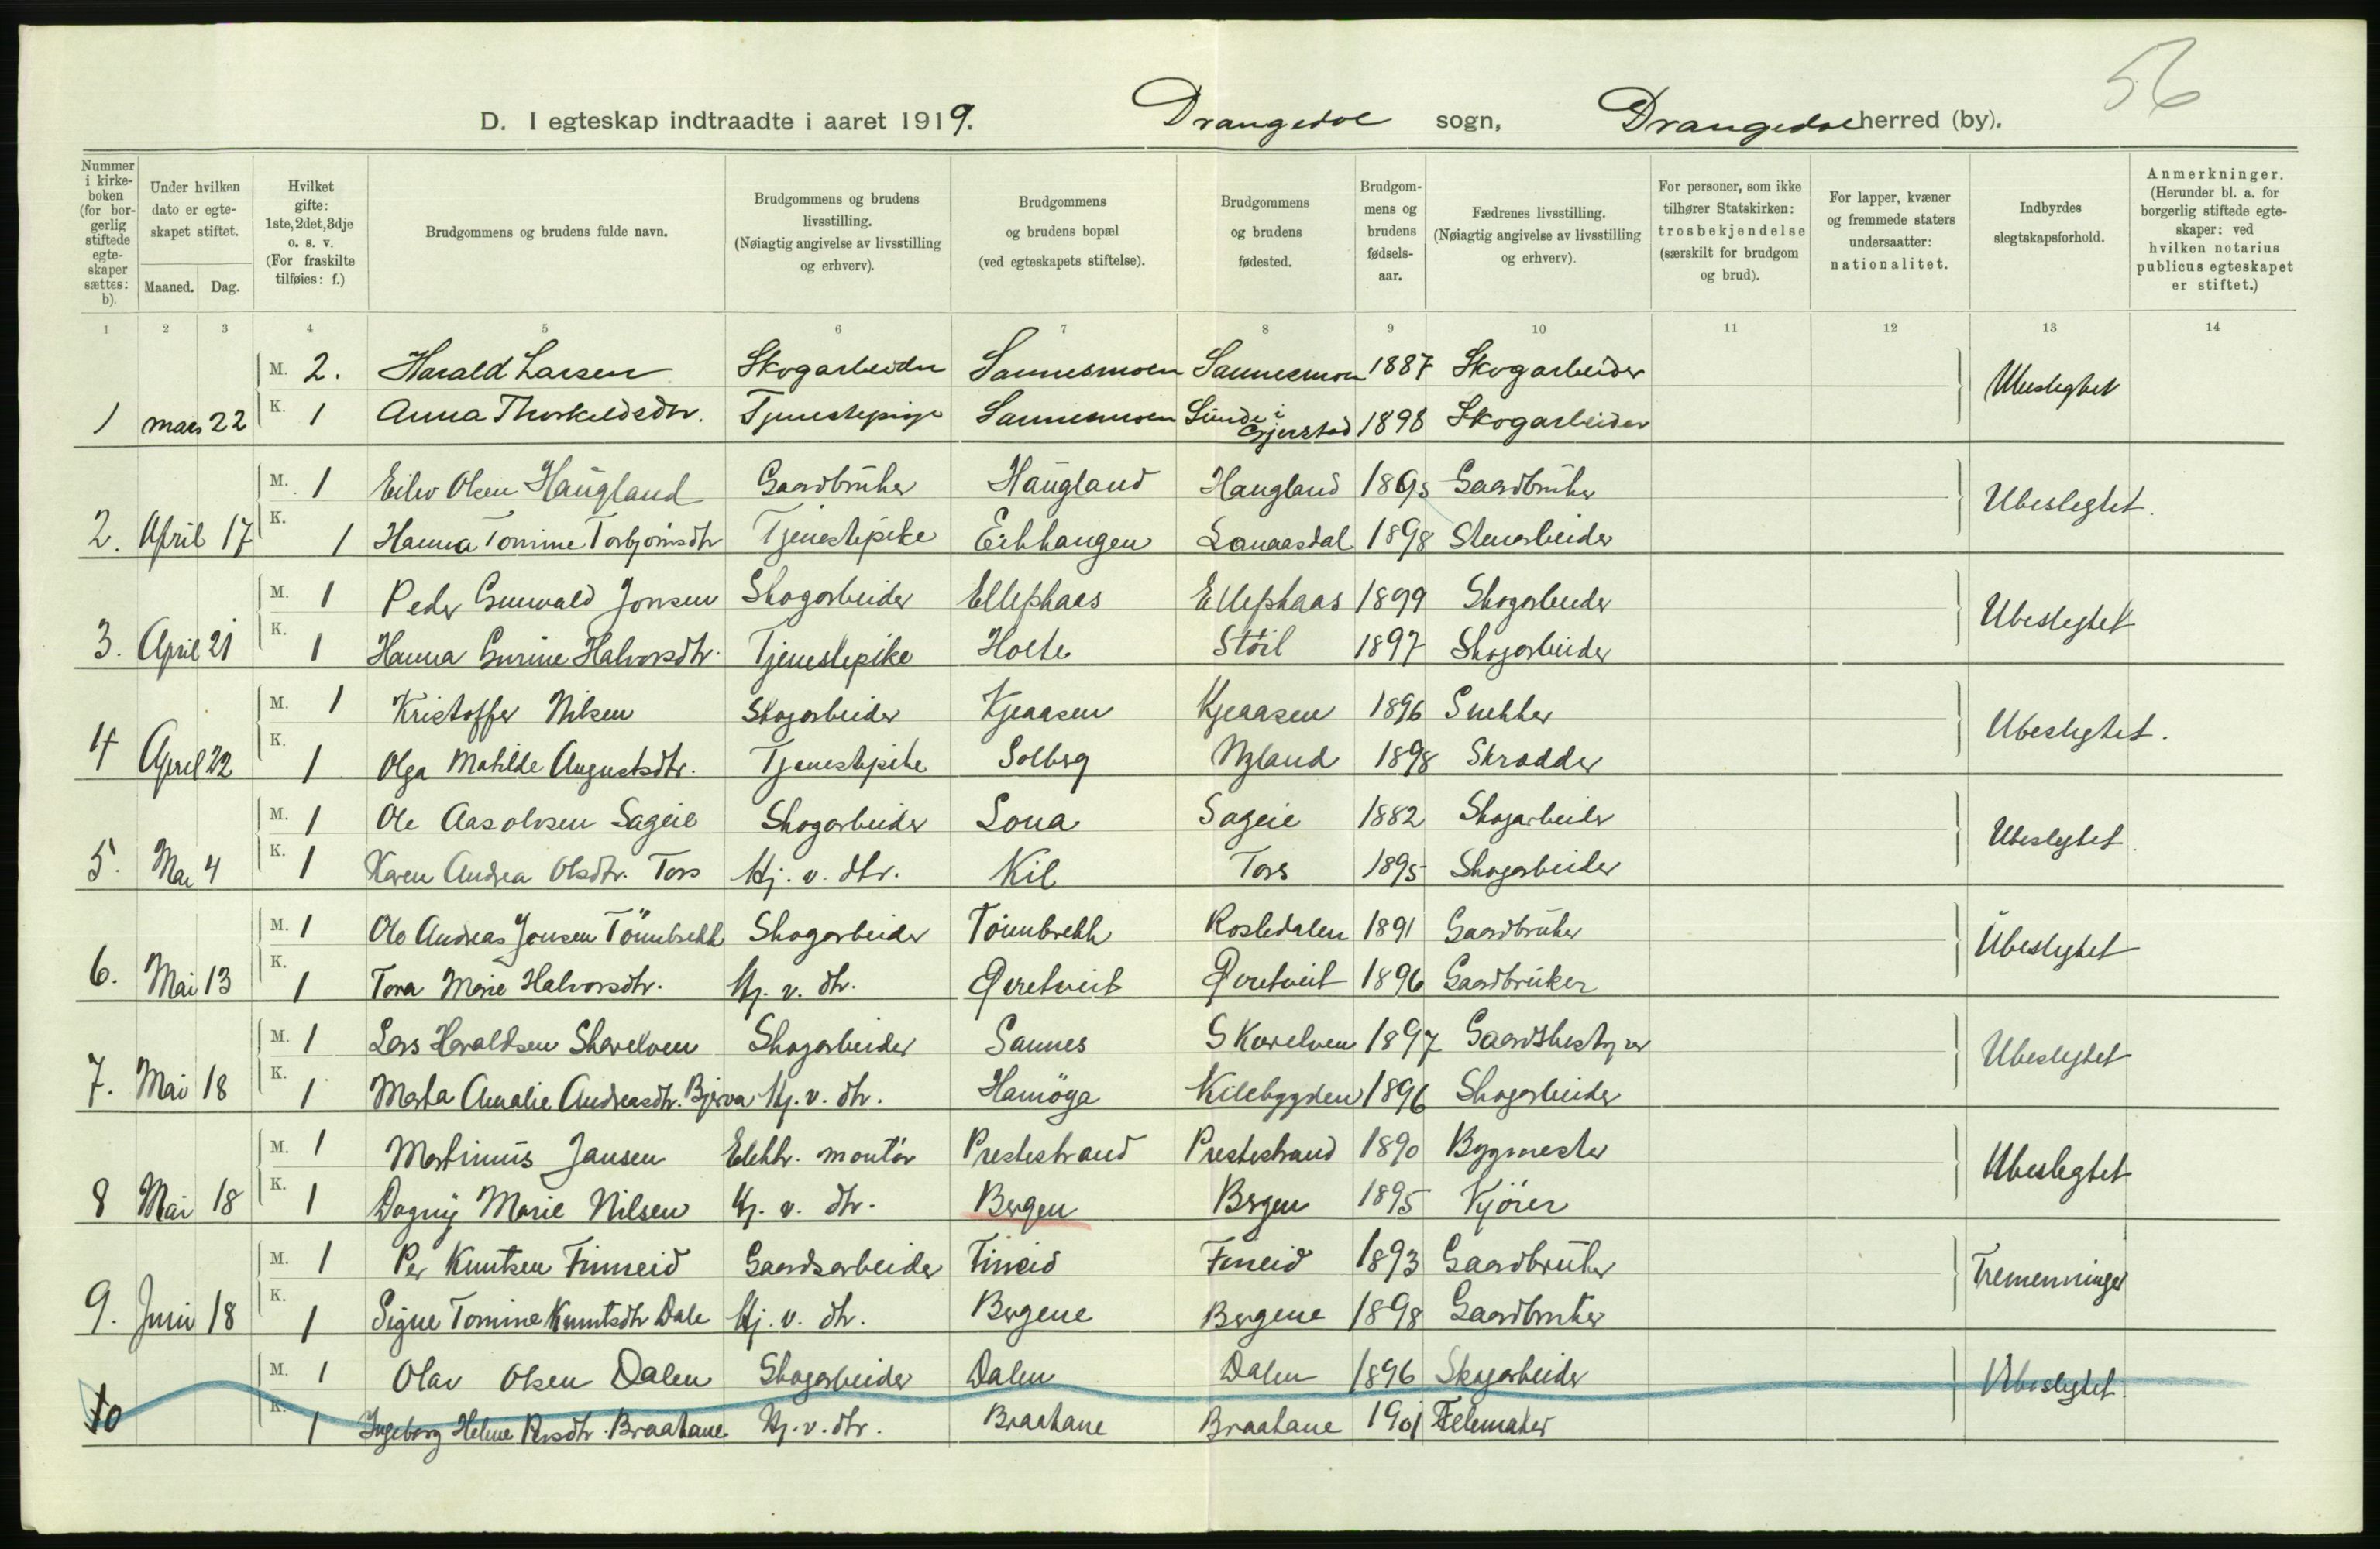 56
D. I egteskap indtraadte i aaret 1919. Drangedal sogn, Drangedal herred (by).
Nummer i kirkeboken (for borgerlig stiftede egteskaper sættes: b).
Under hvilken dato er egteskapet stiftet.
Maaned. Dag.
Hvilket gifte: 1ste, 2det, 3dje o. s. v. (For fraskilte tilføies: f.)
Brudgommens og brudens fulde navn.
Brudgommens og brudens livsstilling. (Nøiagtig angivelse av livsstilling og erhverv).
Brudgommens og brudens bopæl (ved egteskapets stiftelse).
Brudgommens og brudens fødested.
Brudgommens og brudens fødselsaar.
Fædrenes livsstilling. (Nøiagtig angivelse av livsstilling og erhverv).
For personer, som ikke tilhører Statskirken: trosbekjendelse (særskilt for brudgom og brud).
For lapper, kvæner og fremmede staters undersaatter: nationalitet.
Indbyrdes slegtskapsforhold.
Anmerkninger. (Herunder bl. a. for borgerlig stiftede egteskaper: ved hvilken notarius publicus egteskapet er stiftet.)
1 2 3 4 5 6 7 8 9 10 11 12 13 14
M. 2. Harald Larsen Skogarbeider Sannesmoen Sannesmoen 1887 Skogarbeider Ubeslegtet
1 mars 22 K. 1 Anna Thorkildsdtr. Tjenestepige Sannesmoen Sunde i Gjerstad 1898 Skogarbeider
M. 1 Eilev Olsen Haugland Gaardbruker Haugland Haugland 1895 Gaardbruker Ubeslegtet.
2. April 17 K. 1 Hanna Tomine Torbjørnsdtr Tjenestepike Eikhaugen Lonaasdal 1898 Stenarbeider
M. 1 Peder Gunvald Jonsen Skogarbeider Ellephaas Ellephaas 1899 Skogarbeider Ubeslegtet
3. April 21 K. 1 Hanna Gurine Halvorsdtr. Tjenestepike Holte Støil 1897 Skogarbeider
M. 1 Kristoffer Nilsen Skogarbeider Kjeaasen Kjeaasen 1896 Snekker Ubeslegtet.
4 April 22 K. 1 Olga Matilde Augustsdtr. Tjenestepike Solberg Nyland 1898 Skrædder
M. 1 Ole Aasolvsen Sageie Skogarbeider Lona Sageie 1882 Skogarbeider Ubeslegtet.
5. Mai 4 K. 1 Karen Andrea Olsdtr. Tors Hj. v. dtr. Kil Tors 1895 Skogarbeider
M. 1 Ole Andreas Jonsen Tønnbrekk Skogarbeider Tønnbrekk Rosledalen 1891 Gaardbruker Ubeslegtet
6. Mai 13 K. 1 Tora Marie Halvorsdtr. Hj. v. dtr. Øvretveit Øvretveit 1896 Gaardbruker
M. 1 Lars Haraldsen Skarelven Skogarbeider Sannes Skarelven 1897 Gaardsbestyrer Ubeslegtet
7. Mai 18 K. 1 Marta Amalie Andreasdtr. Bjerva Hj. v. dtr. Hamöya Kilebygden 1896 Skogarbeider
M. 1 Martinus Jansen Elektr. montør Prestestrand Prestestrand 1890 Bygmester Ubeslegtet
8 Mai 18 K. 1 Dagny Marie Nilsen Hj. v. dtr. Bergen Bergen 1895 Kjörer
M. 1 Per Knutsen Finneid Gaardsarbeider Fineid Fineid 1893 Gaardbruker Tremenninger
9. Juni 18 K. 1 Signe Tomine Knutsdtr Dale Hj. v. dtr. Bergene Bergene 1898 Gaardbruker
M. 1 Olav Olsen Dalen Skogarbeider Dalen Dalen 1896 Skogarbeider Ubeslegtet.
10 K. 1 Ingeborg Helene Persdtr. Braatane Hj. v. dtr. Braatane Braatane 1901 Felemaker